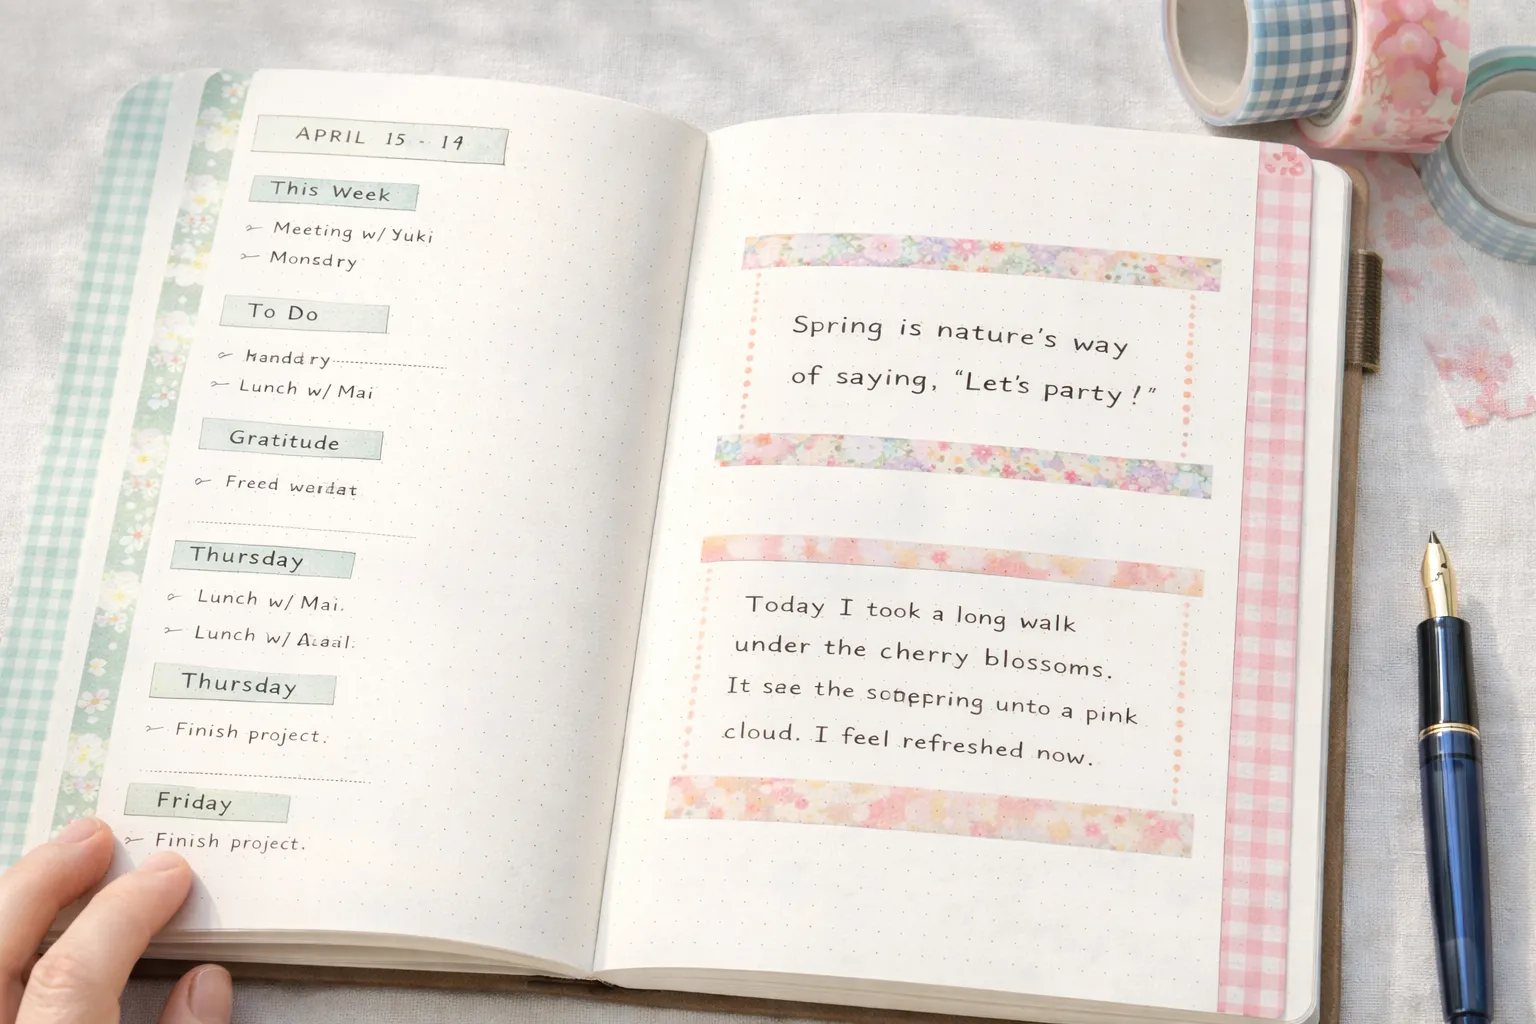 APRIL 15 - 14
This Week
Meeting w/ Yuki
Monsdry
To Do
Handdry
Lunch w/ Mai
Gratitude
Freed
Thursday
Lunch w/ Mai.
Lunch w/
Thursday
Finish project.
Friday
Finish project.
Spring is nature's way
of saying, “Let's party!”
Today I took a long walk
under the cherry blossoms.
It sae the unto a pink
cloud. I feel refreshed now.